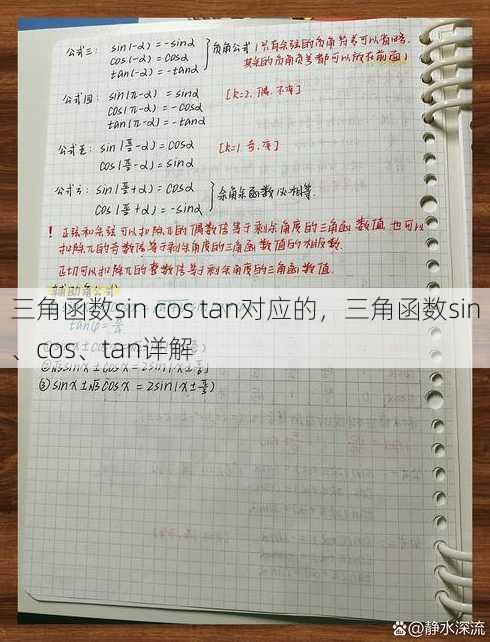 公式三： sin(-α)=-sinα
cos(-α)=cosα
tan(-α)=-tanα
负角公式(只有余弦的负角符号可以省略,
其余的负角负号都可以放在前面)
公式四： sin(π-α)=sinα
cos(π-α)=-cosα
tan(π-α)=-tanα
[k=2, 偶, 不变]
公式五： sin(π/2-α)=cosα
cos(π/2-α)=sinα
[k=1 奇, 变]
公式六： sin(π/2+α)=cosα
cos(π/2+α)=-sinα
余角余函数必相等.
! 正弦和余弦可以扣除π的偶数倍等于剩余角度的三角函数值 也可以
扣除π的奇数倍等于剩余角度的三角函数值的相反数.
正切可以扣除π的整数倍等于剩余角度的三角函数值.
辅助角公式
三角函数sin cos tan对应的，三角函数sin
、cos、tan详解
③sinx±√3cosx=2sin(x±π/3)
百家号/静水深流